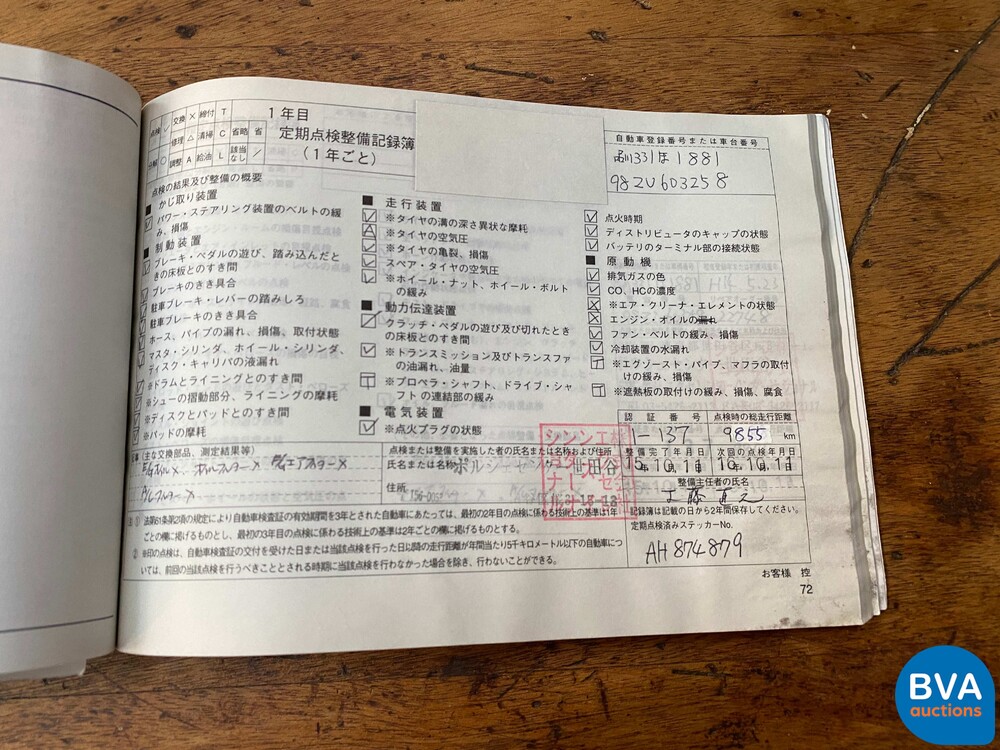 点検 レ 交換 × 締付 T
修理 △ 清掃 C 省略 省
分解 ○ 調整 A 給油 L 該当なし ／
1年目
定期点検整備記録簿
（1年ごと）
自動車登録番号または車台番号
1881
98ZU603258
点検の結果及び整備の概要
■ かじ取り装置
パワー・ステアリング装置のベルトの緩
み、損傷
■ 制動装置
ブレーキ・ペダルの遊び、踏み込んだと
きの床板とのすき間
ブレーキのきき具合
駐車ブレーキ・レバーの踏みしろ
駐車ブレーキのきき具合
ホース、パイプの漏れ、損傷、取付状態
マスタ・シリンダ、ホイール・シリンダ、
ディスク・キャリパの液漏れ
※ドラムとライニングとのすき間
※シューの摺動部分、ライニングの摩耗
※ディスクとパッドとのすき間
※パッドの摩耗
■ 走行装置
※タイヤの溝の深さ異状な摩耗
※タイヤの空気圧
※タイヤの亀裂、損傷
スペア・タイヤの空気圧
※ホイール・ナット、ホイール・ボルト
の緩み
■ 動力伝達装置
クラッチ・ペダルの遊び及び切れたとき
の床板とのすき間
※トランスミッション及びトランスファ
の油漏れ、油量
※プロペラ・シャフト、ドライブ・シャ
フトの連結部の緩み
■ 電気装置
※点火プラグの状態
点火時期
ディストリビュータのキャップの状態
バッテリのターミナル部の接続状態
■ 原動機
排気ガスの色
CO、HCの濃度
※エア・クリーナ・エレメントの状態
エンジン・オイルの漏れ
ファン・ベルトの緩み、損傷
冷却装置の水漏れ
※エグゾースト・パイプ、マフラの取付
けの緩み、損傷
※遮熱板の取付けの緩み、損傷、腐食
認証番号 点検時の総走行距離
1-137 9855 km
整備完了年月日 次回の点検年月日
15 10 11 16 10 11
整備主任者の氏名
工藤 直之
(主な交換部品、測定結果等)
点検または整備を実施した者の氏名または名称および住所
氏名または名称 ポルシェセンター世田谷
住所
記録簿は記載の日から2年間保存してください。
定期点検済みステッカーNo.
AH 874879
注 ① 法第61条第2項の規定により自動車検査証の有効期間を3年とされた自動車にあたっては、最初の2年目の点検に係わる技術上の基準は1年
ごとの欄に掲げるものとし、最初の3年目の点検に係わる技術上の基準は2年ごとの欄に掲げるものとする。
② ※印の点検は、自動車検査証の交付を受けた日または当該点検を行った日以降の走行距離が年間当たり5千キロメートル以下の自動車につ
いては、前回の当該点検を行うべきこととされる時期に当該点検を行わなかった場合を除き、行わないことができる。
お客様 控
72
BVA
auctions